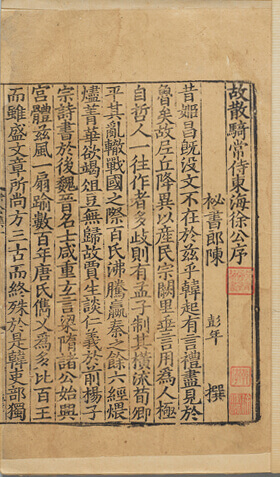 故散騎常侍東海徐公序
祕書郎陳 彭年 撰
昔姬昌旣没文不在於兹乎韓起有言禮盡見於
魯矣故尼丘降異以産民宗闕里垂言用為人極
自哲人一往作者多歧則有孟子制其横流荀卿
平其亂轍戰國之際百氏沸騰嬴秦之餘六經煨
燼菁華欲竭俎豆無歸故賈生談仁義於前揚子
宗詩書於後魏晉名士咸重玄言梁隋諸公始興
宮體兹風一扇踰數百年唐氏儁乂為多比百王
而雖盛文章所尚方三古而終殊於是韓吏部獨